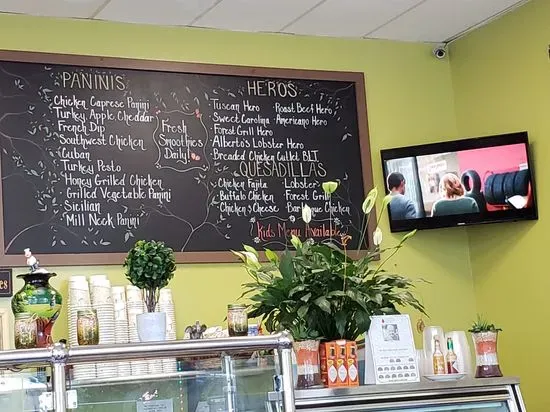 PANINIS
Chicken Caprese Panini
Turkey Apple Cheddar
French Dip
Southwest Chicken
Cuban
Turkey Pesto
Honey Grilled Chicken
Grilled Vegetable Panini
Sicilian
Mill Neck Panini
Fresh
Smoothies
Daily!
HEROS
Tuscan Hero Roast Beef Hero
Sweet Carolina Americano Hero
Forest Grill Hero
Alberto's Lobster Hero
Breaded Chicken Cutlet BLT
QUESADILLAS
Chicken Fajita Lobster
Buffalo Chicken Forest Grill
Chicken & Cheese Barbeque Chicken
Kids Menu Available